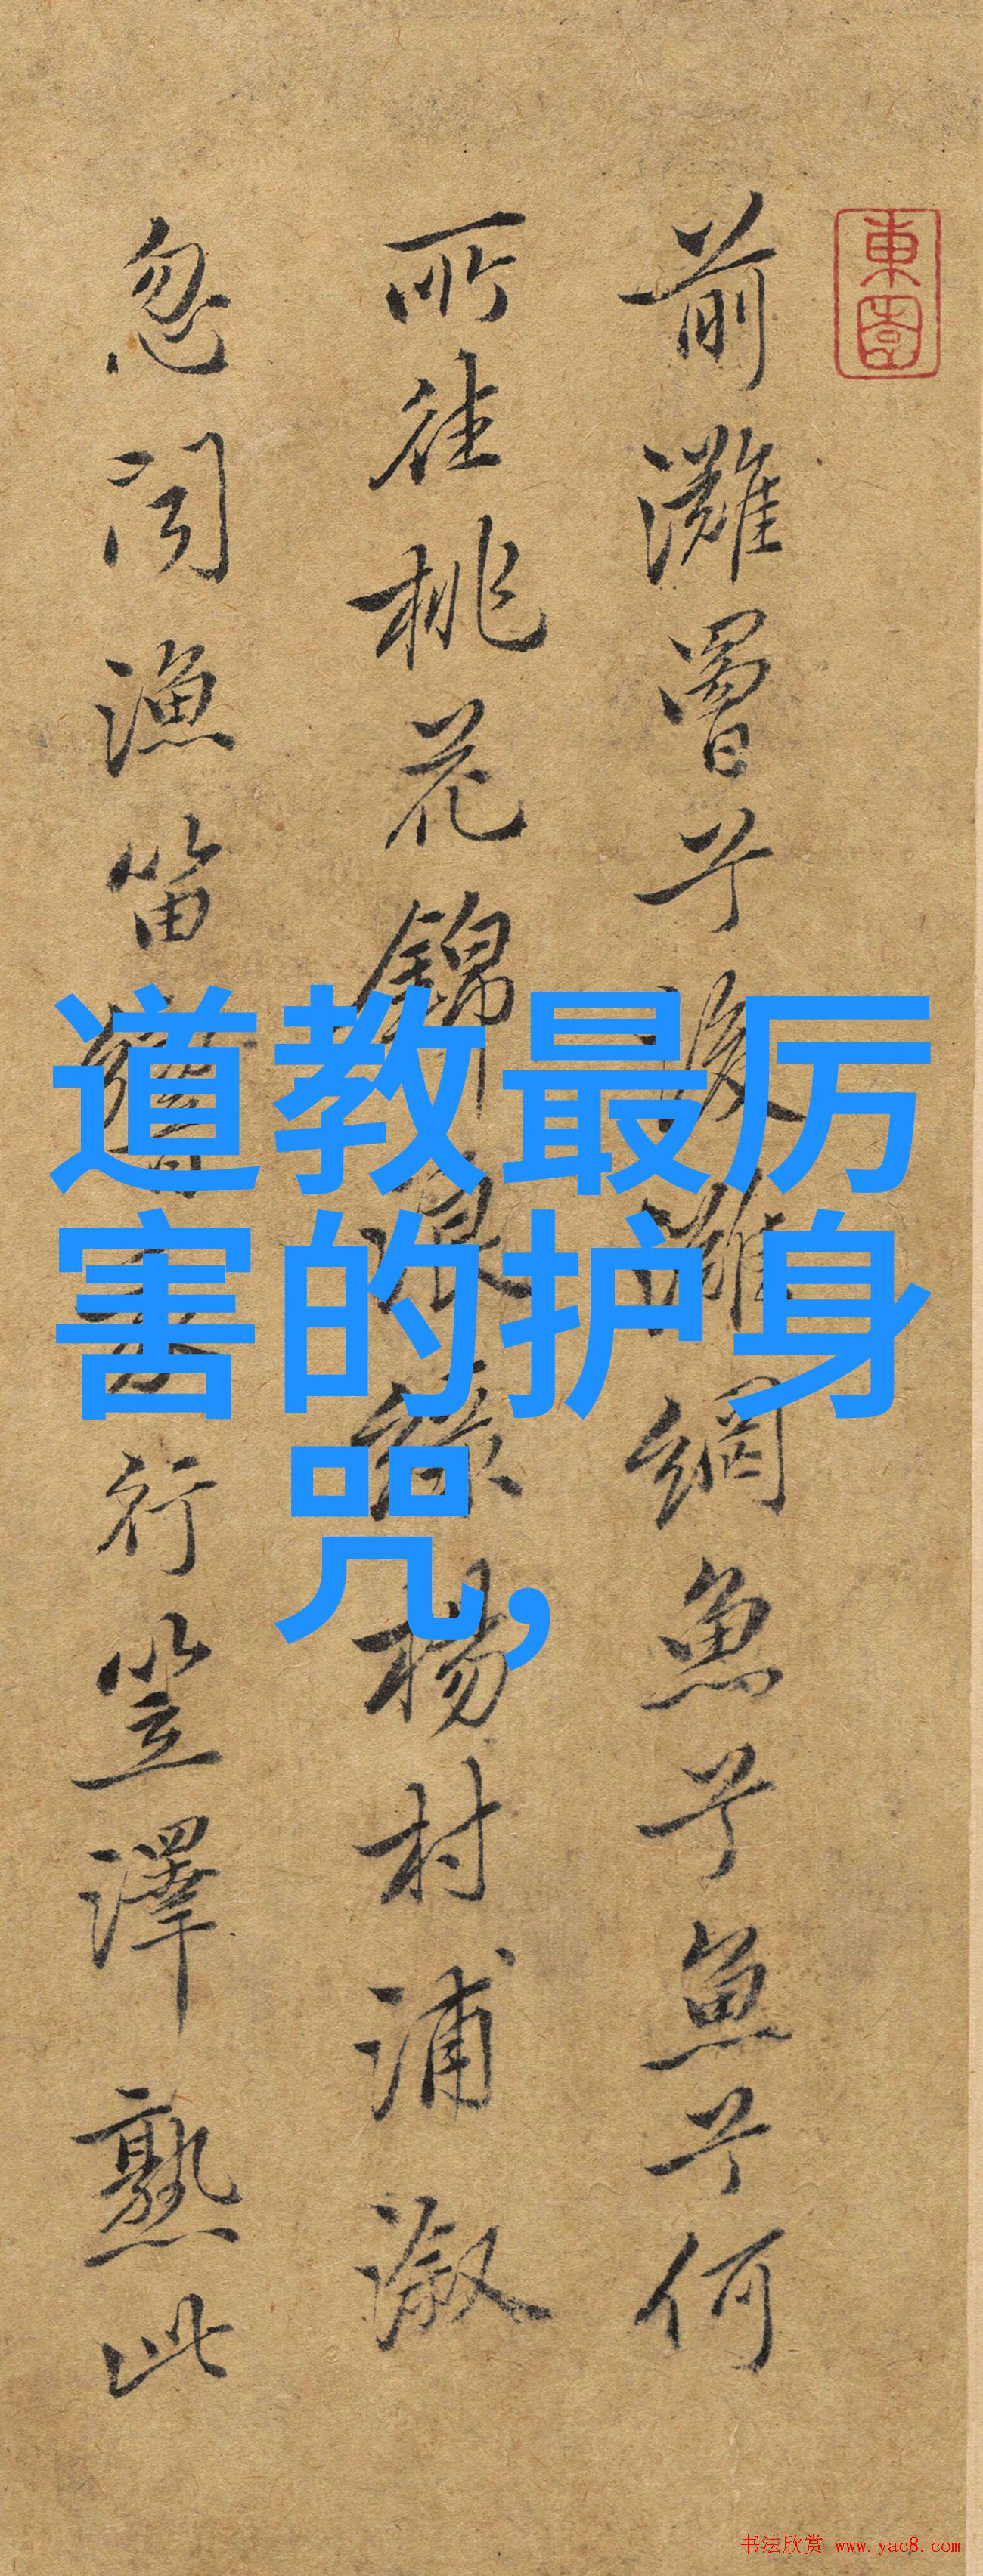 東園
前灘罾兮後灘網魚兮魚兮何
所往桃花錦浪綠楊村浦溆
忽聞漁笛行笠澤熟此
道教最厉
害的护身
咒,
书法欣赏 www.yac8.com